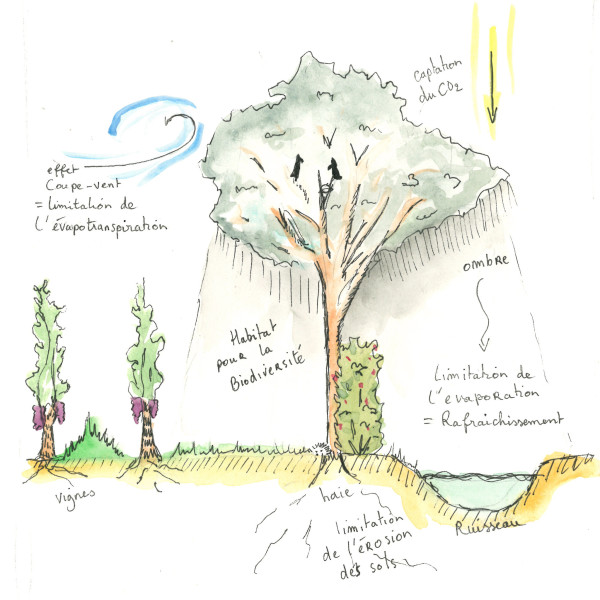 captation
du CO2
effet
Coupe-vent
= limitation de
l'évapotranspiration
ombre
Habitat
pour la
Biodiversité
Limitation de
l'évaporation
= Rafraichissement
vignes
haie
limitation
de l'érosion
des sols
Ruisseau